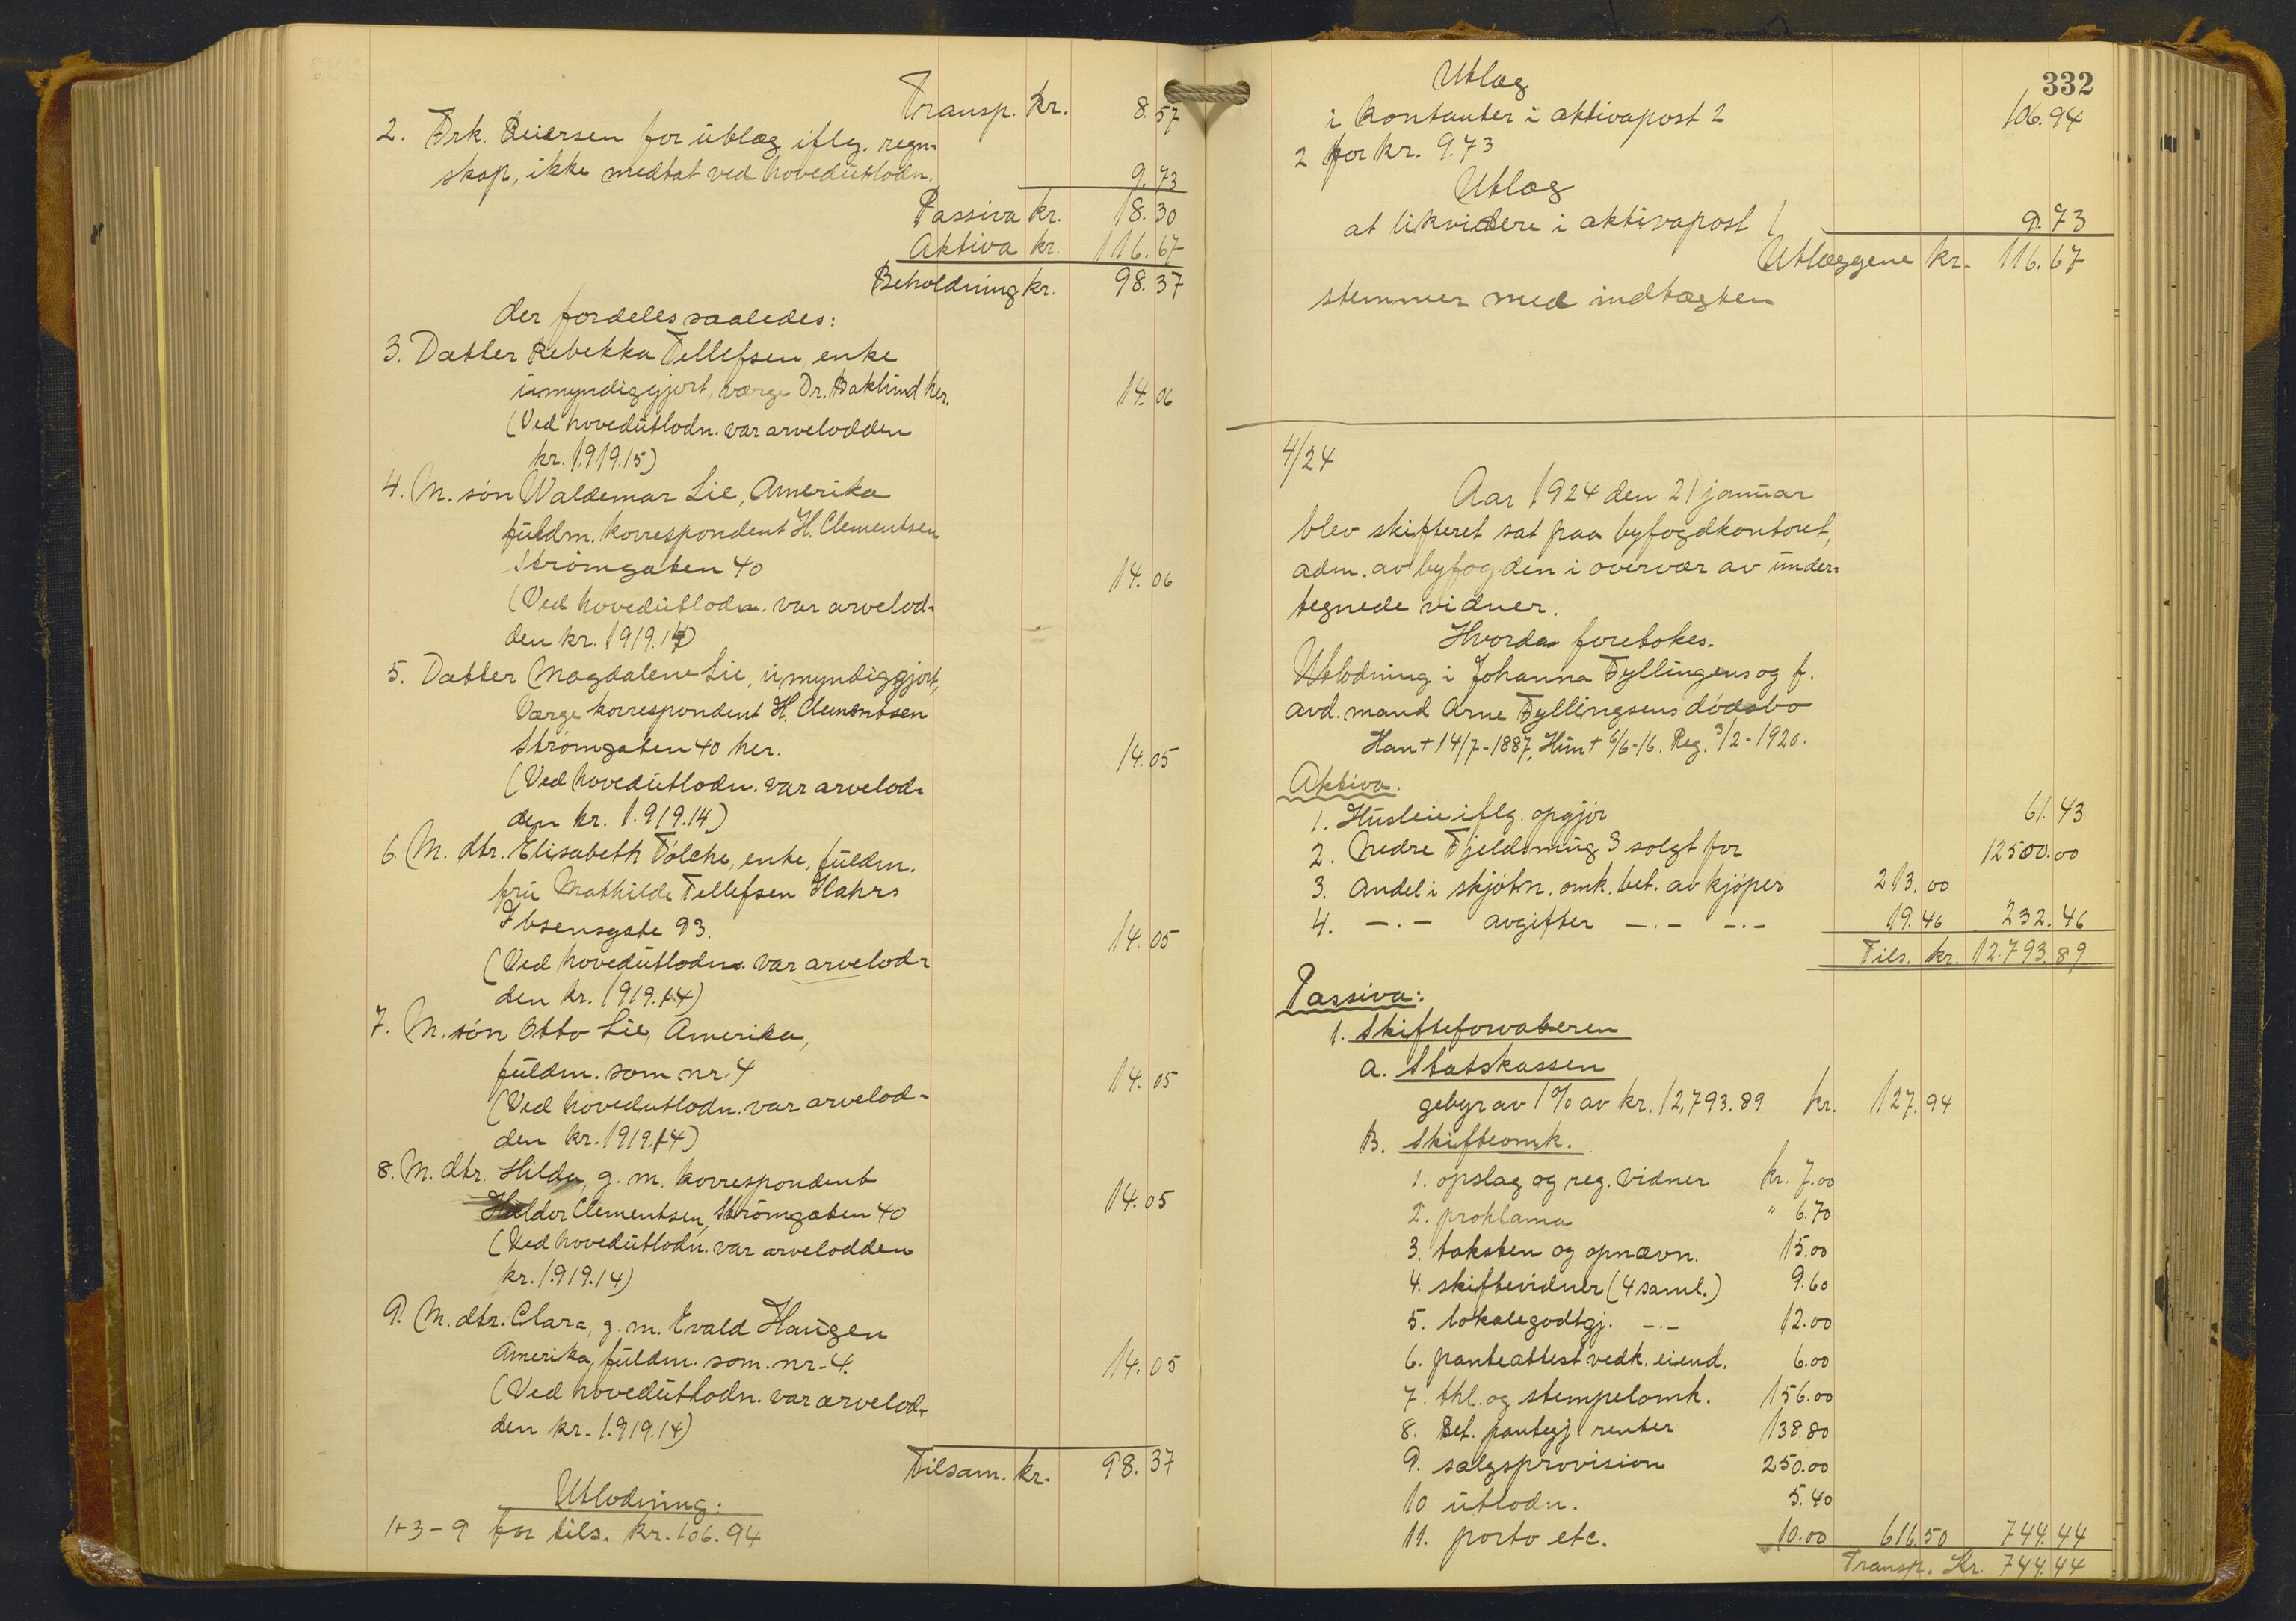 Transp. kr. 8.57
2. Frk. Beiersen for utlæg iflg. regn-
skap, ikke medtat ved hovedutlodn. 9.73
Passiva kr. 18.30
Aktiva kr. 116.67
Beholdning kr. 98.37
der fordeles saaledes:
3. Datter Rebekka Tellefsen enke
umyndiggjort, værge Dr. Baklund her. 14.06
(Ved hovedutlodn. var arvelodden
kr. 1.919.15)
4. M. søn Waldemar Lie, Amerika
fuldm. korrespondent H. Clementsen
Strømgaten 40 14.06
(Ved hovedutlodn. var arvelod-
den kr. 1919.14)
5. Datter Magdalene Lie, umyndiggjort,
Værge korrespondent H. Clementsen
Strømgaten 40 her. 14.05
(Ved hovedutlodn. var arvelod-
den kr. 1.919.14)
6. M. dtr. Elisabeth Tølche, enke, fuldm.
fru Mathilde Tellefsen Hahrs
Ibsensgate 93. 14.05
(Ved hovedutlodn. var arvelod-
den kr. 1919.14)
7. M. søn Otto Lie, Amerika,
fuldm. som nr. 4 14.05
(Ved hovedutlodn. var arvelod-
den kr. 1919.14)
8. M. dtr. Hilda, g. m. korrespondent
Haldor Clementsen, Strømgaten 40 14.05
(Ved hovedutlodn. var arvelodden
kr. 1.919.14)
9. M. dtr. Clara, g. m. Evald Haugen
Amerika, fuldm. som. nr. 4. 14.05
(Ved hovedutlodn. var arvelod-
den kr. 1.919.14)
Tilsam. kr. 98.37
Utlodning:
1+3-9 for tils. kr. 106.94
332
Utlæg
i kontanter i aktivapost 2 106.94
2 for kr. 9.73
Utlæg
at likvidere i aktivapost 1 9.73
Utlæggene kr. 116.67
stemmer med indtægten
4/24
Aar 1924 den 21 januar
blev skifteret sat paa byfogdkontoret,
adm. av byfogden i overvær av under-
tegnede vidner.
Hvorda foretokes.
Utlodning i Johanna Fyllingens og f.
avd. mand Arne Fyllingsens dødsbo
Han + 14/7-1887, Hun + 6/6-16. Reg. 3/2-1920.
Aktiva.
1. Husleie iflg. opgjør 61.43
2. Nedre Fjeldsmug 3 solgt for 12500.00
3. Andel i skjøtn. omk. bet. av kjøper 213.00
4. -.- avgifter -.- -.- 19.46 232.46
Tils. kr. 12.793.89
Passiva:
1. Skifteforvalteren
a. Statskassen
gebyr av 1% av kr. 12,793.89 kr. 127.94
B. Skifteomk.
1. opslag og reg. vidner kr. 7.00
2. proklama " 6.70
3. taksten og opnævn. 15.00
4. skiftevidner (4 saml.) 9.60
5. lokalegodtgj. -.- 12.00
6. panteattest vedk. eiend. 6.00
7. thl. og stempelomk. 156.00
8. Bet. pantegj. renter 138.80
9. salgsprovision 250.00
10 utlodn. 5.40
11. porto etc. 10.00 616.50 744.44
Transp. Kr. 744.44